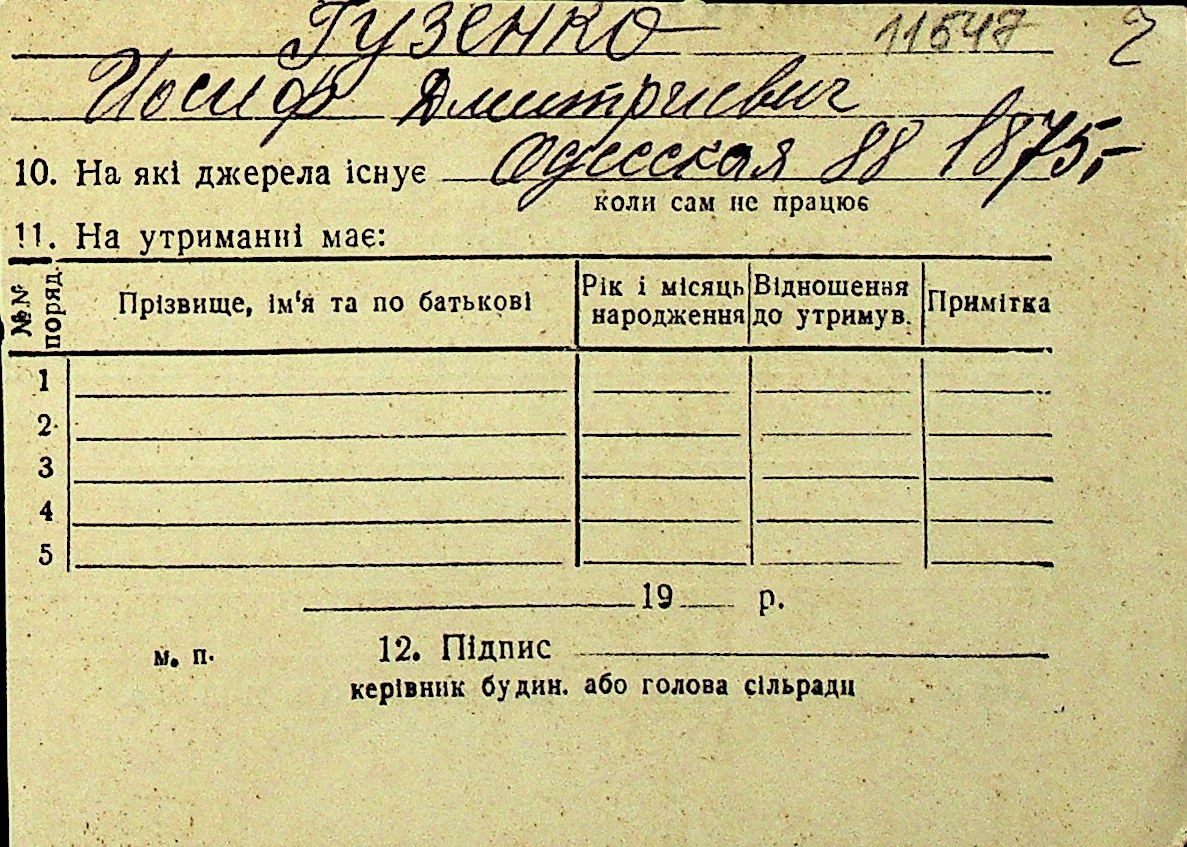 Гузенко 11547 2
Иосиф Дмитриевич
10. На які джерела існує Одесская 88 1875,-
коли сам не працює
11. На утриманні має:
№№ поряд. Прізвище, ім'я та по батькові Рік і місяць народження Відношення до утримув. Примітка
1
2
3
4
5
19 р.
м. п. 12. Підпис
керівник будин. або голова сільради